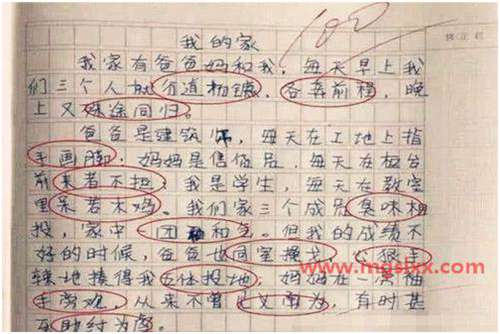 我的家
我家有爸爸妈和我，每天早上我
们三个人就分道扬镳，各奔前程，晚
上又殊途同归。
爸爸是建筑师，每天在工地上指
手画脚，妈妈是售货员，每天在柜台
前来者不拒，我是学生，每天在教室
里呆若木鸡。我们家三个成员臭味相
投，家中一团和气。但我的成绩不
好的时候，爸爸也同室操戈，心狠手
辣地揍得我五体投地，妈妈在一旁袖
手旁观，从来不曾见义勇为，有时甚
至助纣为虐。
www.mgslxx.com